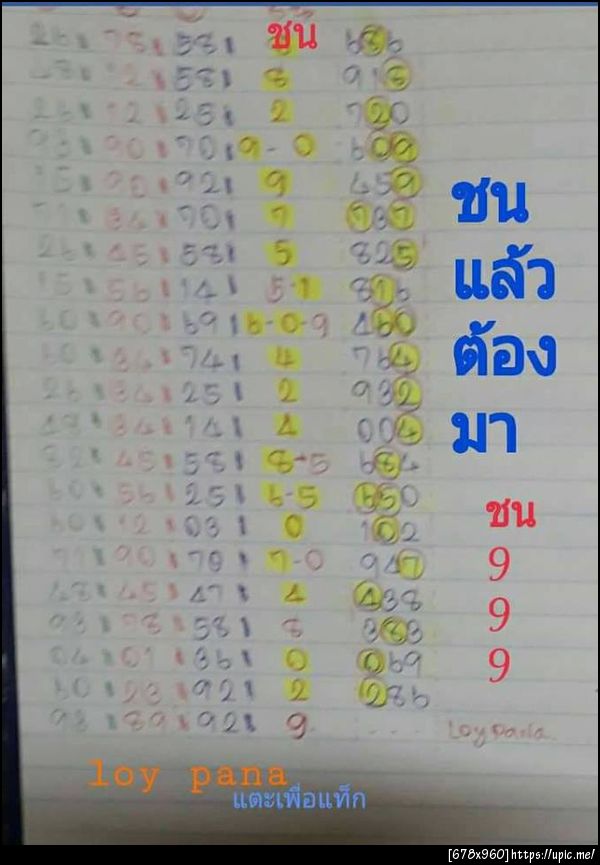 ชน
26 78 58 686
48 12 58 8 918
26 12 25 2 720
93 90 70 9-0 609
15 90 92 9 459
71 34 70 7 737
26 45 58 5 825
15 56 14 5-1 816
60 90 69 6-0-9 460
60 34 74 4 764
26 34 25 2 932
48 34 14 4 004
82 45 58 8-5 684
60 56 25 6-5 650
60 12 03 0 102
71 90 70 7-0 947
48 45 47 4 438
93 78 58 8 383
04 01 36 0 069
60 23 92 2 286
93 89 92 9 ...
ชน
แล้ว
ต้อง
มา
ชน
9
9
9
Loy pana
loy pana
แตะเพื่อแท็ก
[678x960]https://upic.me/